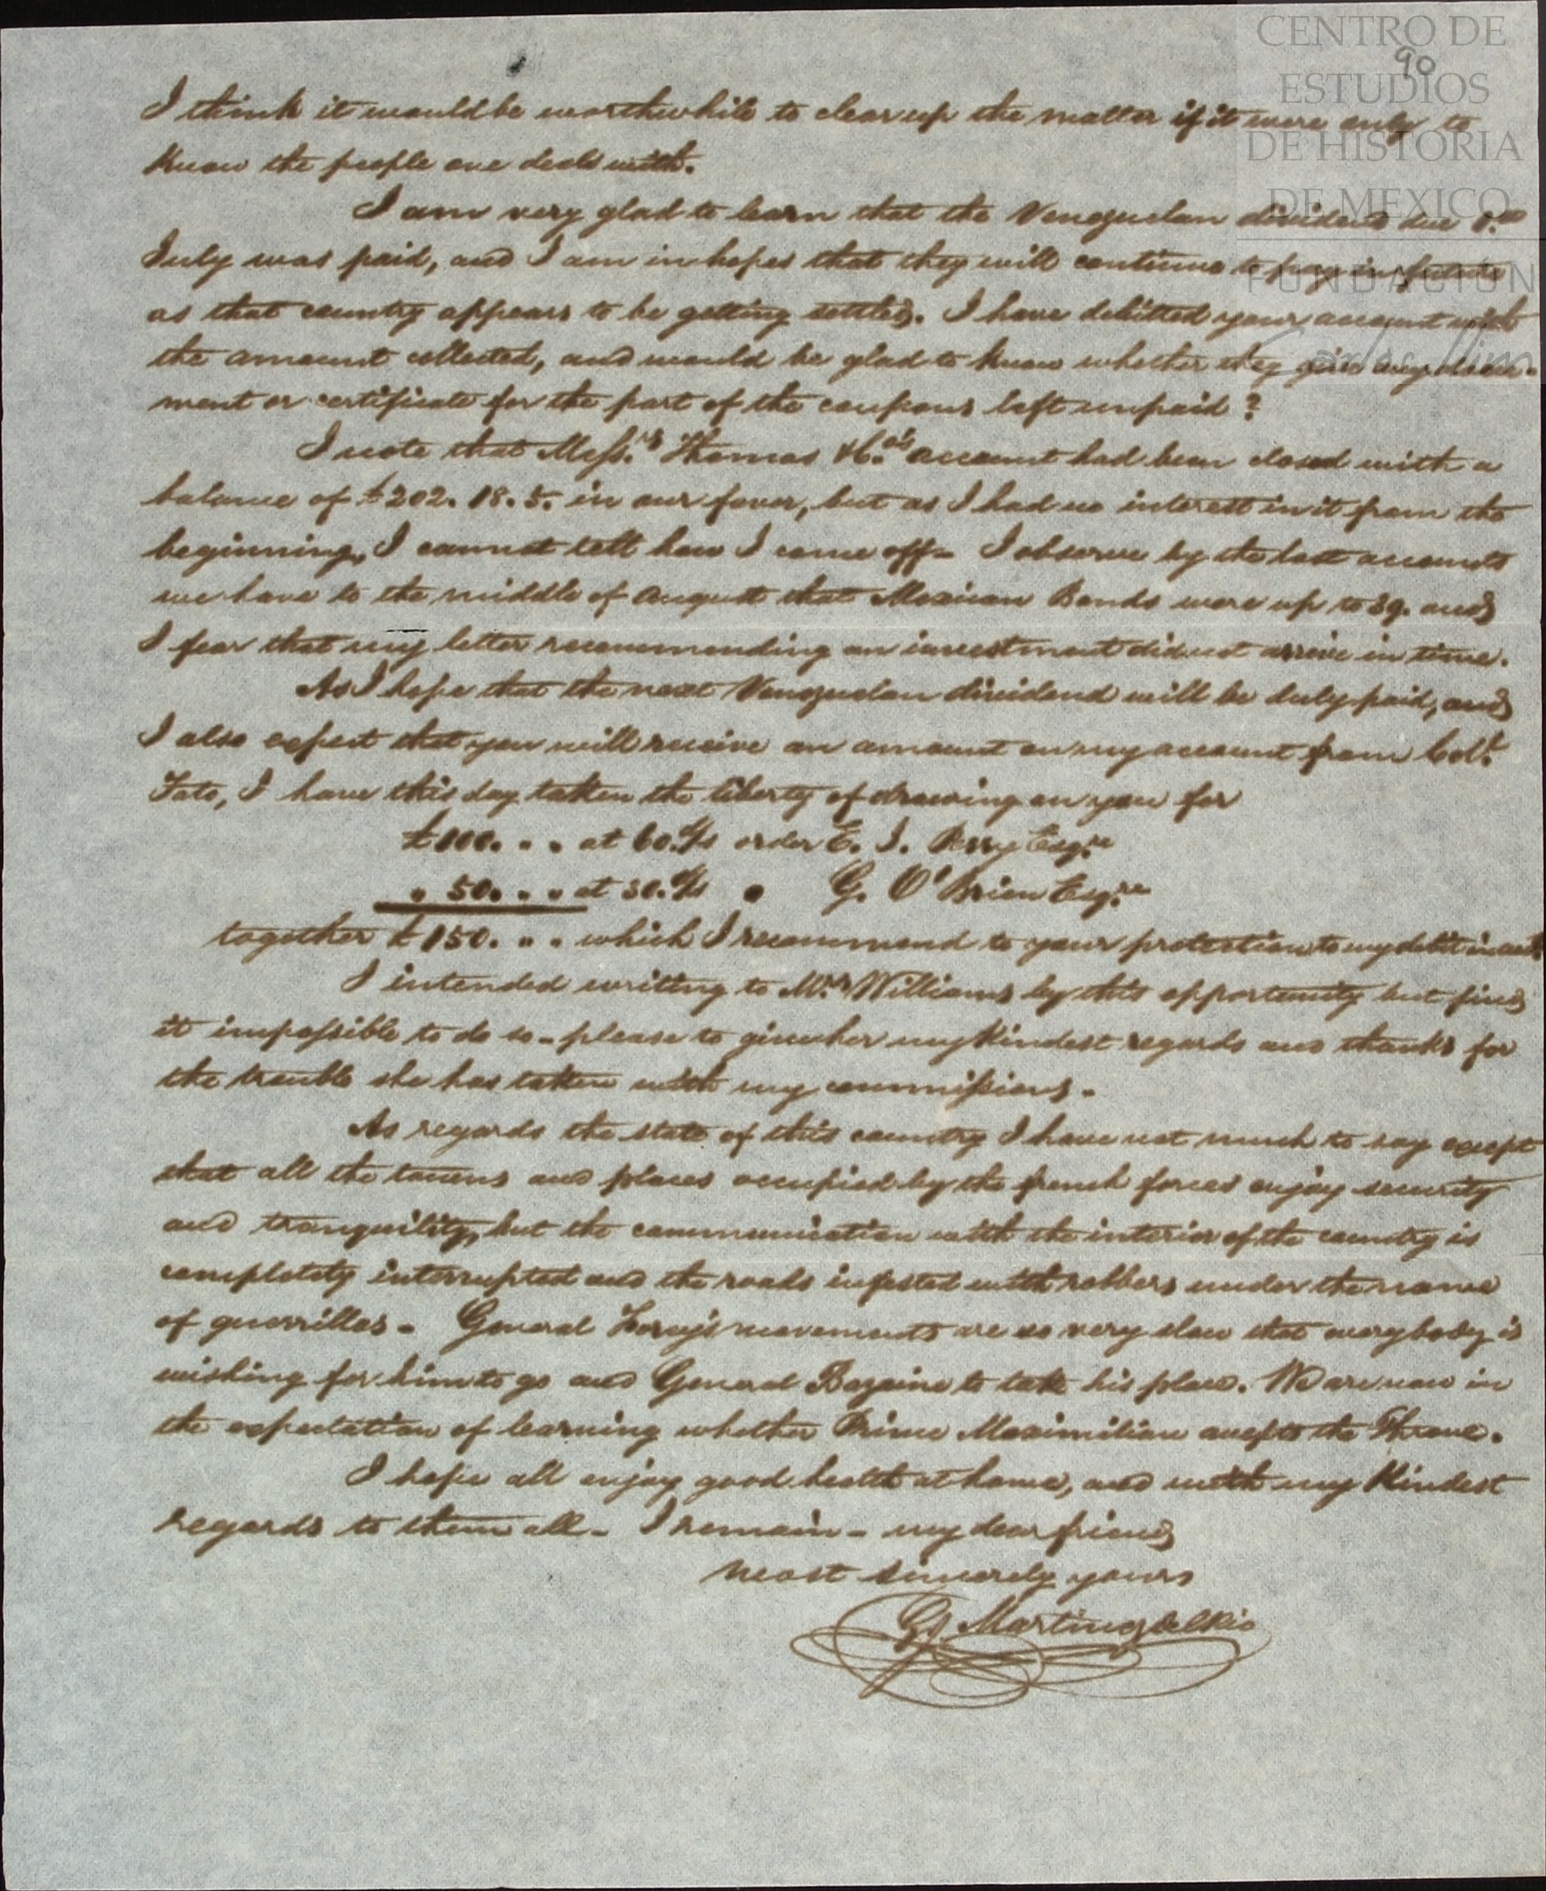 CENTRO DE
ESTUDIOS
DE HISTORIA
DE MEXICO
FUNDACION
Carlos Slim
90
I think it would be worthwhile to clear up the matter if it were only to
know the people one deals with.
I am very glad to learn that the Venezuelan dividend due
July was paid, and I am in hopes that they will continue to pay in future
as that country appears to be getting settled. I have debitted your account with
the amount collected, and would be glad to know whether they give any docu-
ment or certificate for the part of the coupons left unpaid?
I note that Mess.rs Thomas & C.os account had been closed with a
balance of £202. 18. 5. in our favor, but as I had no interest in it from the
beginning, I cannot tell how I come off - I observe by the last accounts
we have to the middle of August that Mexican Bonds were up to 39. and
I fear that my letter recommending an investment did not arrive in time.
As I hope that the next Venezuelan dividend will be duly paid, and
I also expect that you will receive an amount on my account from Col.l
I have this day taken the liberty of drawing on you for
£100. " " at 60 d/s order E. J. Perry Esq.re
" 50. " " at 30. d/s " G. O'Brien Esq.re
together £150. " " which I recommend to your protection to my debit in acct.
I intended writing to M.rs Williams by this opportunity but find
it impossible to do so - please to give her my kindest regards and thanks for
the trouble she has taken with my commissions.
As regards the state of this country I have not much to say except
that all the towns and places occupied by the french forces enjoy security
and tranquility, but the communication with the interior of the country is
completely interrupted and the roads infested with robbers under the name
of guerrillas - General Forey's movements are so very slow that everybody is
wishing for him to go and General Bazaine to take his place. We are now in
the expectation of learning whether Prince Maximilian accepts the Throne.
I hope all enjoy good health at home, and with my kindest
regards to them all - I remain - my dear friend
most sincerely yours
Martinez del Rio